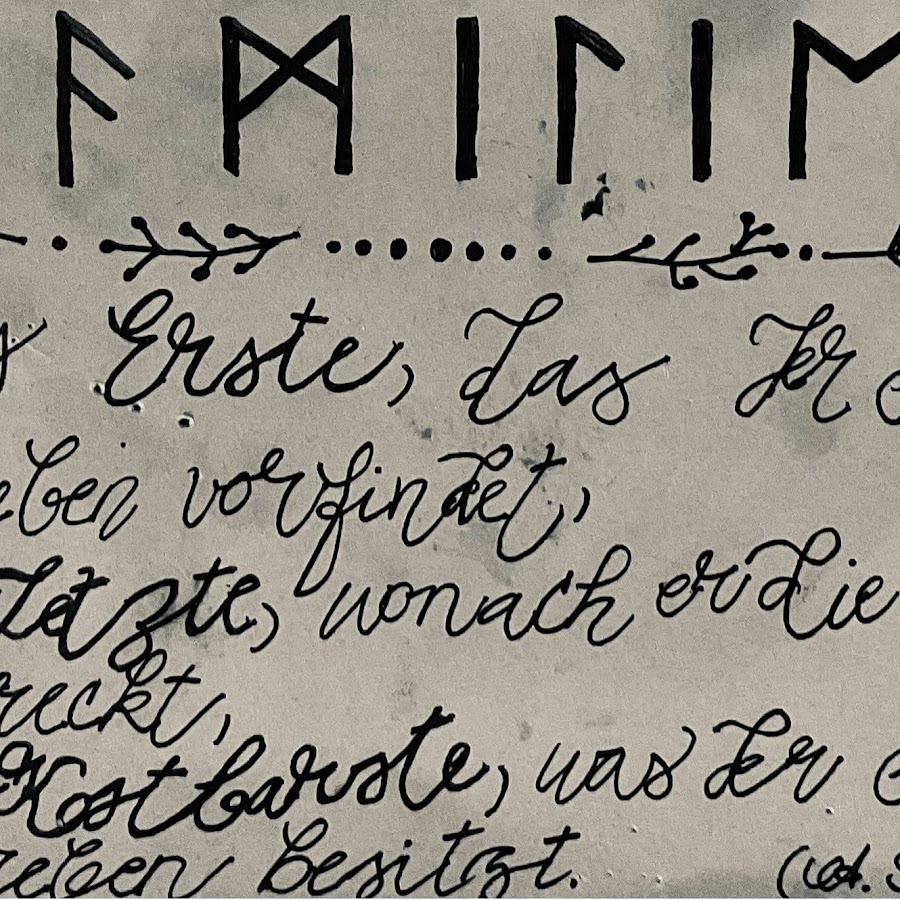 ᚨᛗᛁᛚᛁᛖ
Erste, das der
eben vorfindet,
Letzte, wonach er die
reckt,
Kostbarste, was der
eben besitzt.